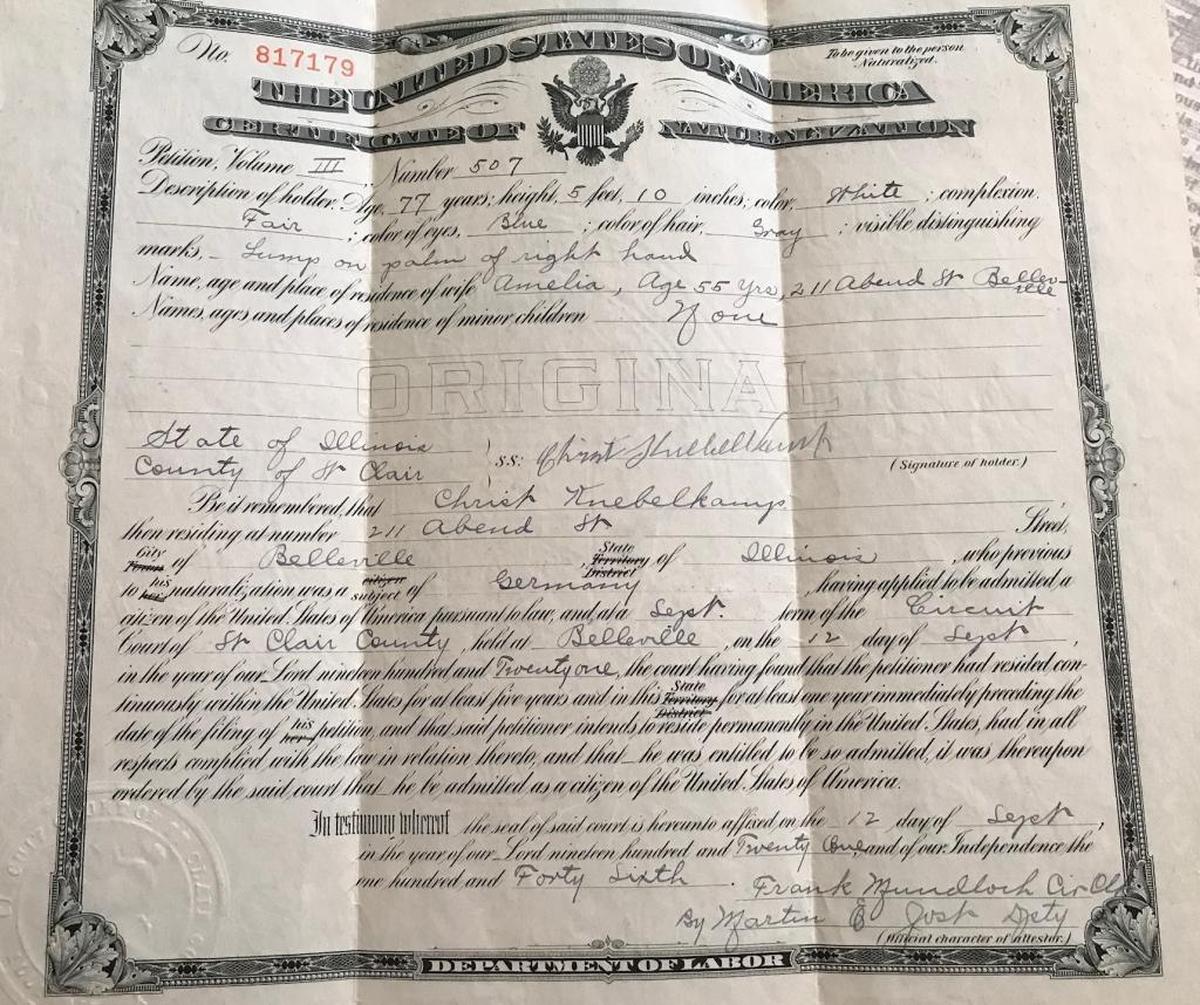 No. 817179
To be given to the person Naturalized.
THE UNITED STATES OF AMERICA
CERTIFICATE OF NATURALIZATION
Petition, Volume III, Number 507
Description of holder: Age, 77 years; height, 5 feet, 10 inches; color, White; complexion,
Fair; color of eyes, Blue; color of hair, Gray; visible distinguishing
marks, - Lump on palm of right hand
Name, age and place of residence of wife Amelia, Age 55 Yrs, 211 Abend St Belleville
Names, ages and places of residence of minor children None
ORIGINAL
State of Illinois
County of St Clair
s.s: Christ Knebelkamp
(Signature of holder.)
Be it remembered, that Christ Knebelkamp,
then residing at number 211 Abend St Street,
City Town of Belleville, State Territory District of Illinois, who previous
to his her naturalization was a citizen subject of Germany, having applied to be admitted a
citizen of the United States of America pursuant to law, and at a Sept. term of the Circuit
Court of St Clair County, held at Belleville, on the 12 day of Sept,
in the year of our Lord nineteen hundred and Twenty one, the court having found that the petitioner had resided con-
tinuously within the United States for at least five years and in this State Territory District for at least one year immediately preceding the
date of the filing of his her petition, and that said petitioner intends to reside permanently in the United States, had in all
respects complied with the law in relation thereto, and that he was entitled to be so admitted, it was thereupon
ordered by the said court that he be admitted as a citizen of the United States of America.
In testimony whereof the seal of said court is hereunto affixed on the 12 day of Sept,
in the year of our Lord nineteen hundred and Twenty One, and of our Independence the
one hundred and Forty Sixth.
Frank Mundloch Cir Clk
By Martin E Jost Dpty
(Official character of attestor.)
DEPARTMENT OF LABOR